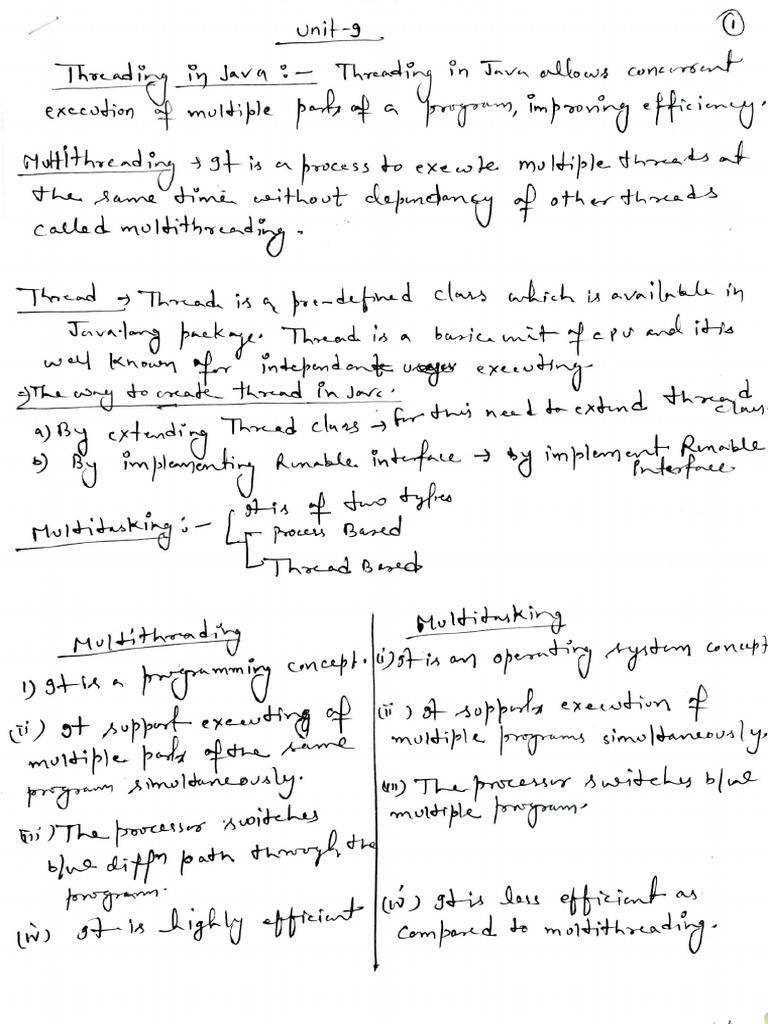 Unit-9
①
Threading in Java :- Threading in Java allows concurrent
execution of multiple parts of a program, improving efficiency.
Multithreading → It is a process to execute multiple threads at
the same time without dependancy of other threads
called multithreading.
Thread → Thread is a pre-defined class which is available in
Java.lang package. Thread is a basic unit of CPU and it is
well known for independent executing
The way to create thread in Java.
a) By extending Thread class → for this need to extend thread class.
b) By implementing Runable interface → by implement Runable
Interface
Multitasking :- It is of two types
Process Based
Thread Based
Multithreading
i) It is a programming concept.
(ii) It support executing of
multiple parts of the same
program simultaneously.
(iii) The processor switches
b/w diffn path through the
program.
(iv) It is highly efficient
Multitasking
(i) It is an operating system concept
(ii) It supports execution of
multiple programs simultaneously.
(iii) The processor switches b/w
multiple program.
(iv) It is less efficient as
compared to multithreading.